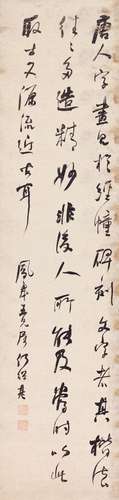 唐人字畫見於經幢碑刻文字者其楷法
往往多造精妙非後人所能及蓋當時以此
取士又源流近古耳
鳳奉堯尼何紹基